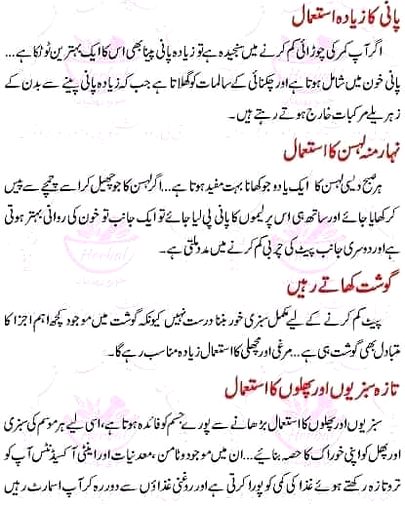 پانی کا زیادہ استعمال
اگر آپ کمر کی چوڑائی کم کرنے میں سنجیدہ ہے تو زیادہ پانی پینا بھی اس کا ایک بہترین ٹوٹکا ہے...
پانی خون میں شامل ہوتا ہے اور چکنائی کے سالمات کو گھلاتا ہے جب کہ زیادہ پانی پینے سے بدن کے
زہریلے مرکبات خارج ہوتے رہتے ہیں۔
نہار منہ لہسن کا استعمال
ہر صبح دیسی لہسن کا ایک یا دو جو کھانا بہت مفید ہوتا ہے... اگر لہسن کا جو چھیل کر اسے چمچے سے پیس
کر کھایا جائے اور ساتھ ہی اس پر لیموں کا پانی پی لیا جائے تو ایک جانب تو خون کی روانی بہتر ہوتی
ہے اور دوسری جانب پیٹ کی چربی کم کرنے میں مدد ملتی ہے۔
گوشت کھاتے رہیں
پیٹ کم کرنے کے لیے مکمل سبزی خور بننا درست نہیں کیونکہ گوشت میں موجود کچھ اہم اجزا کا
متبادل بھی گوشت ہی ہے... مرغی اور مچھلی کا استعمال زیادہ مناسب رہے گا۔
تازہ سبزیوں اور پھلوں کا استعمال
سبزیوں اور پھلوں کا استعمال بڑھانے سے پورے جسم کو فائدہ ہوتا ہے، اسی لیے ہر موسم کی سبزی
اور پھل کو اپنی خوراک کا حصہ بنائیے... ان میں موجود وٹامن، معدنیات اور اینٹی آکسیڈنٹس آپ کو
تروتازہ رکھتے ہوئے غذا کی کمی کو پورا کرتی ہے اور روغنی غذاؤں سے دور رہ کر آپ اسمارٹ رہیں
Herbal